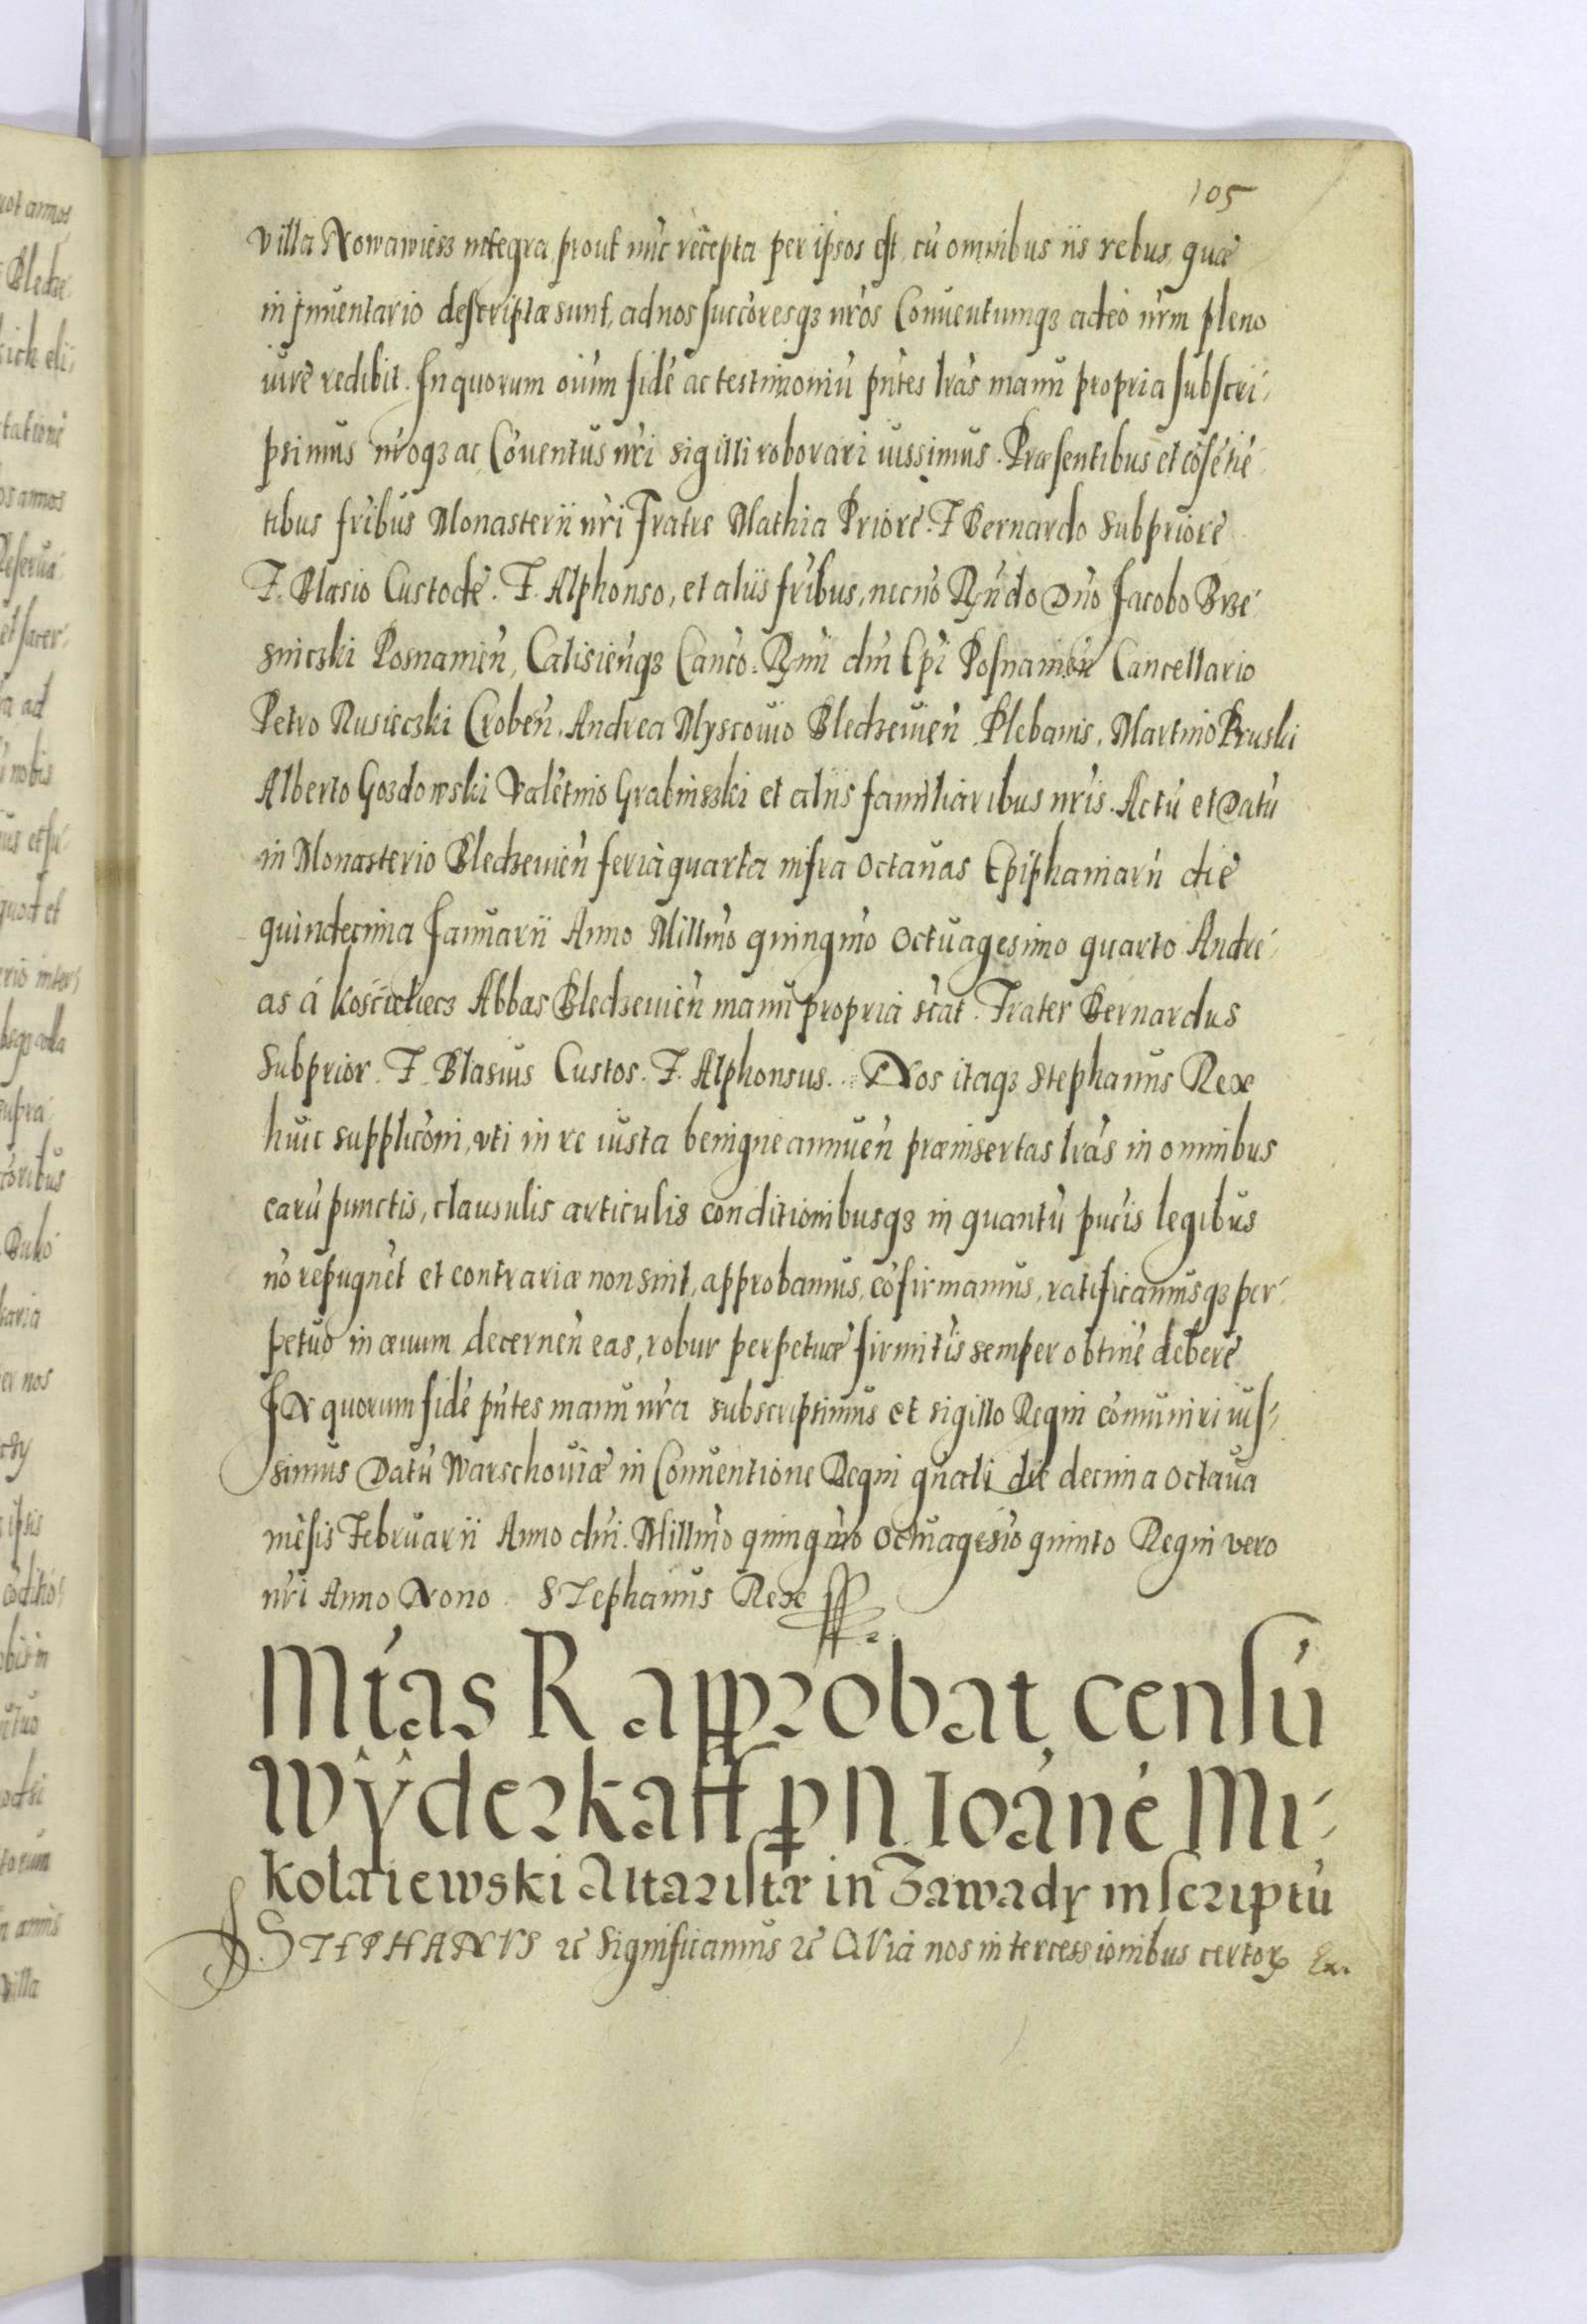 105
villa Nowawiesz integra, prout nūc recepta per ipsos est, cū omnibus iis rebus, quæ
in jnuentario descriptæ sunt, ad nos succōresqȝ nr̄os Conuentumqȝ adeo nr̄m pleno
iure redibit. In quorum oīum fidē ac testimoniū pn̄tes lr̄as manu propria subscri-
psimus nr̄oqȝ ac Cōuentus nr̄i sigilli roborari iussimus. Præsentibus et cōsētiē-
tibus fr̄ibus Monasterii nr̄i Fratre Mathia Priore. F Bernardo Subpriore
F. Blasio Custode. F. Alphonso, et aliis fr̄ibus, necnō Rn̄do Dn̄o Jacobo Brze-
sniczki Posnanien̄, Calisien̄qȝ Canco. Rmi dn̄i Epī Posnanien̄ Cancellario
Petro Rusieczki Croben̄. Andrea Myscouio Bledzeuien̄ Plebanis. Martino Pruski
Alberto Gozdowski Valētino Grabinszki et aliis familiaribus nr̄is. Actū et Datū
in Monasterio Bledzeuien̄ feria quarta infra Octauas Epiphaniarū die
quindecima Januarii Anno Millmō quingmō Octuagesimo quarto Andre-
as á Koscielecz Abbas Bledzeuien̄ manu propria sc̄at. Frater Bernardus
Subprior. F. Blasius Custos. F. Alphonsus. Nos itaqȝ Stephanus Rex
huic supplicōni, vti in re iusta benigne annuen̄ præinsertas lr̄as in omnibus
earū punctis, clausulis articulis conditionibusqȝ in quantū pucis legibus
nō repugnēt et contrariæ non sint, approbamus, cōfirmamus, ratificamusqȝ per-
petuo in æuum decernen̄ eas, robur perpetuæ firmitīs semper obtinē debere
IN quorum fidē pn̄tes manu nr̄a subscripsimus et sigillo Regni cōmuniri ius-
simus Datū Warschouiæ in Conuentione Regni gn̄ali die decima octaua
mēsis Februarii Anno dn̄i. Millmō quingmō Octuagesīo quinto Regni vero
nr̄i Anno Nono. STephanus Rex
Mtās R approbat censū
Wÿderkaff p N. Ioānē Mi-
kolaiewski Altaristæ in Zawady inscriptū
STEPHANVS ꝛc Significamus ꝛc QVia nos intercessionibus certoꝝ